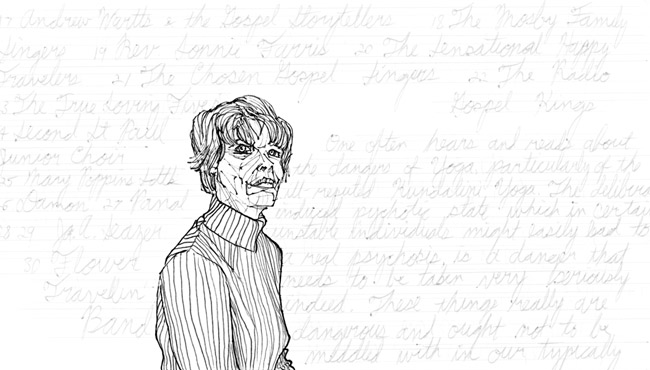 17 Andrew Wartts & the Gospel Storytellers 18 The Mosby Family
Singers 19 Rev Lonnie Farris 20 The Sensational Happy
Travelers 21 The Chosen Gospel Singers 22 The Radio
3 The True Loving Five Gospel Kings
4 Second St Paul One often hears and reads about
Junior Choir the dangers of Yoga, particularly of the
25 Mary Poppins ill reputed Kundalini Yoga. The
26 Damon 27 psychotic state which in certain
28 29 unstable individuals might easily lead to
30 Flower real psychosis is a danger that
Travelin needs to be taken very seriously
Band indeed. These things really are
dangerous and ought not to be
meddled with in our typically